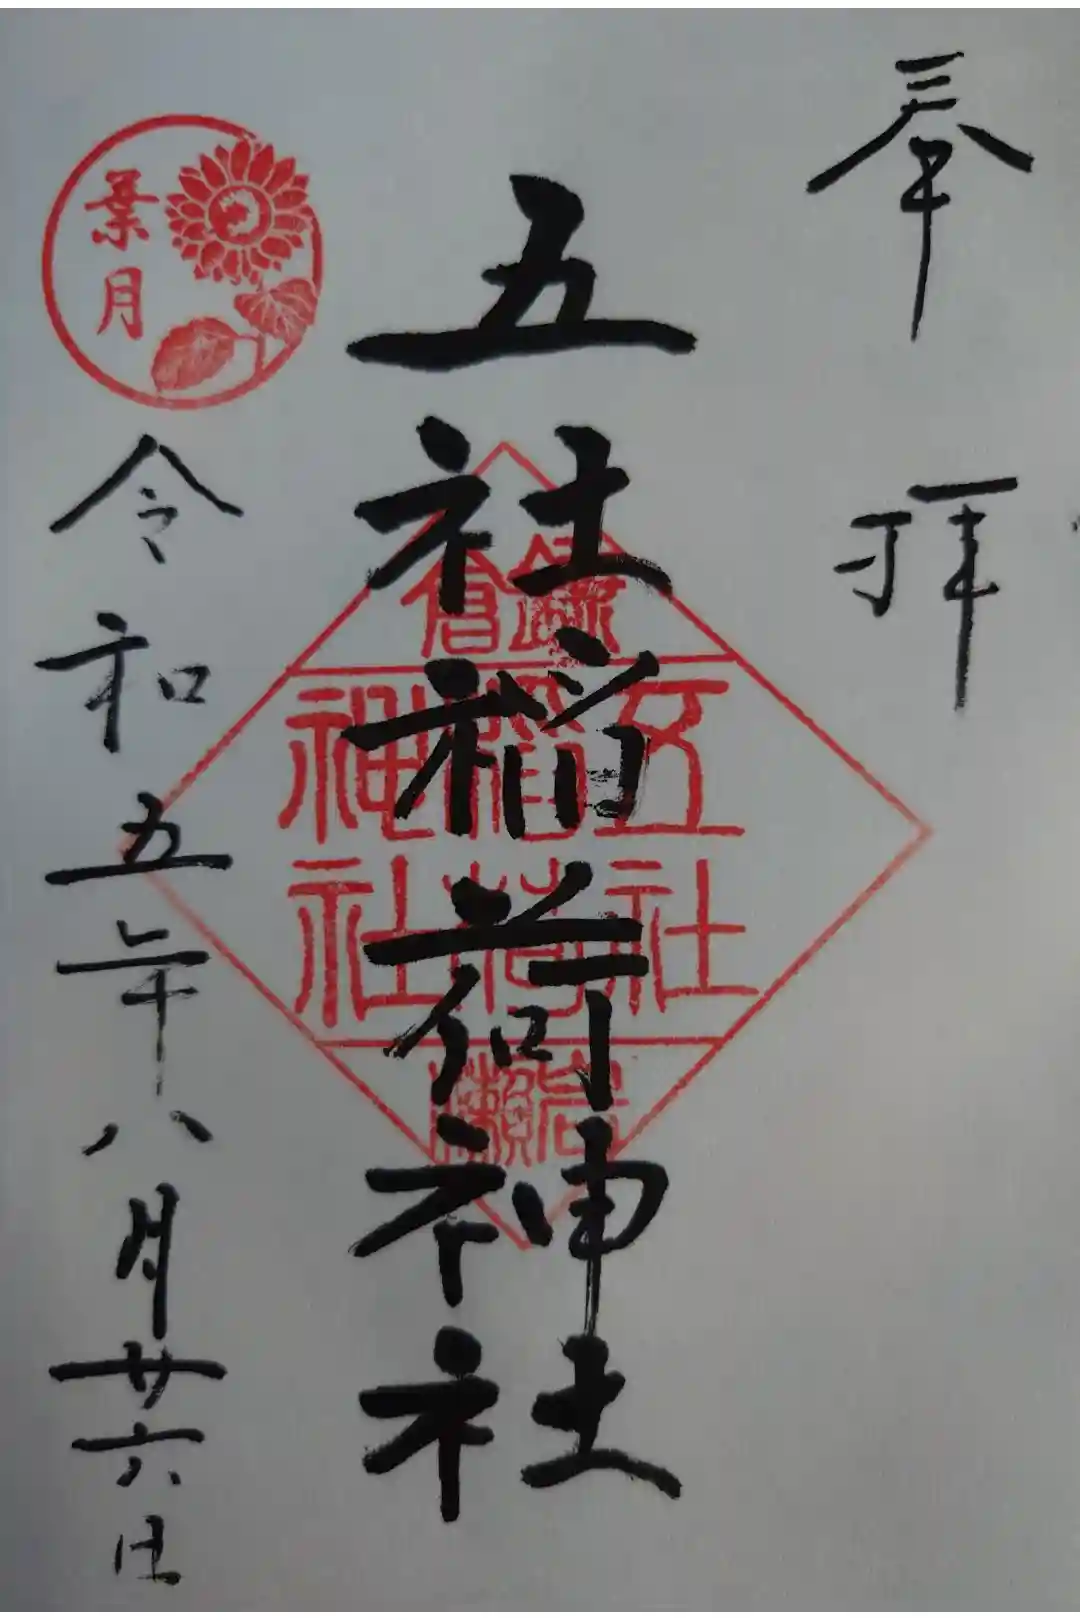 奉拝
五社稲荷神社
鎌倉
五社
稲荷
神社
岩瀬
葉月
令和五年八月廿六日